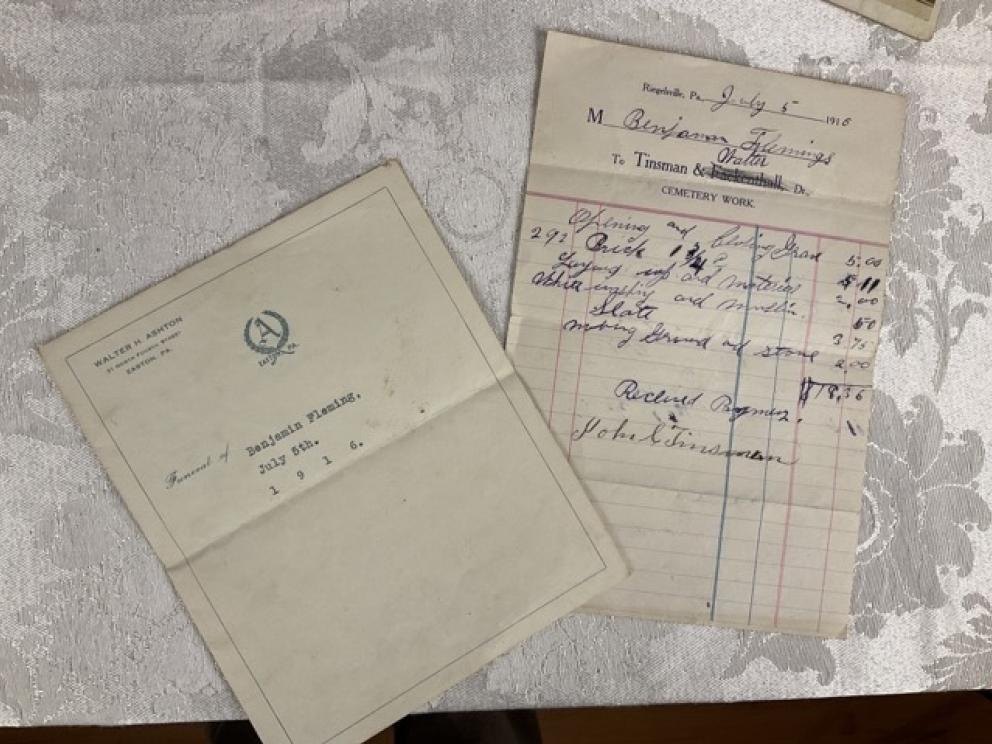 WALTER H. ASHTON
31 NORTH FOURTH STREET
EASTON, PA.
A
EASTON, PA.
Funeral of Benjamin Fleming.
July 5th.
1 9 1 6.
Riegelsville, Pa. July 5 1916
M Benjaman Flemings
Walter
To Tinsman & Fackenthall, Dr.
CEMETERY WORK.
Opening and Closing Grave 5.00
292 Brick 1 3/4 ¢ 5 11
Laying up and material 2.00
White and muslin. 50
Slate 3 75
moving Ground and stone 2.00
$18.36
Received Paymen.
John C Tinsman